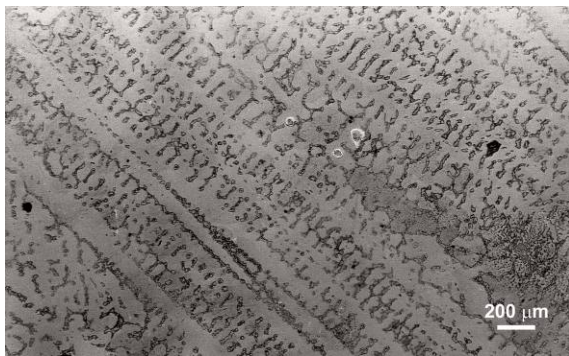 200 μm